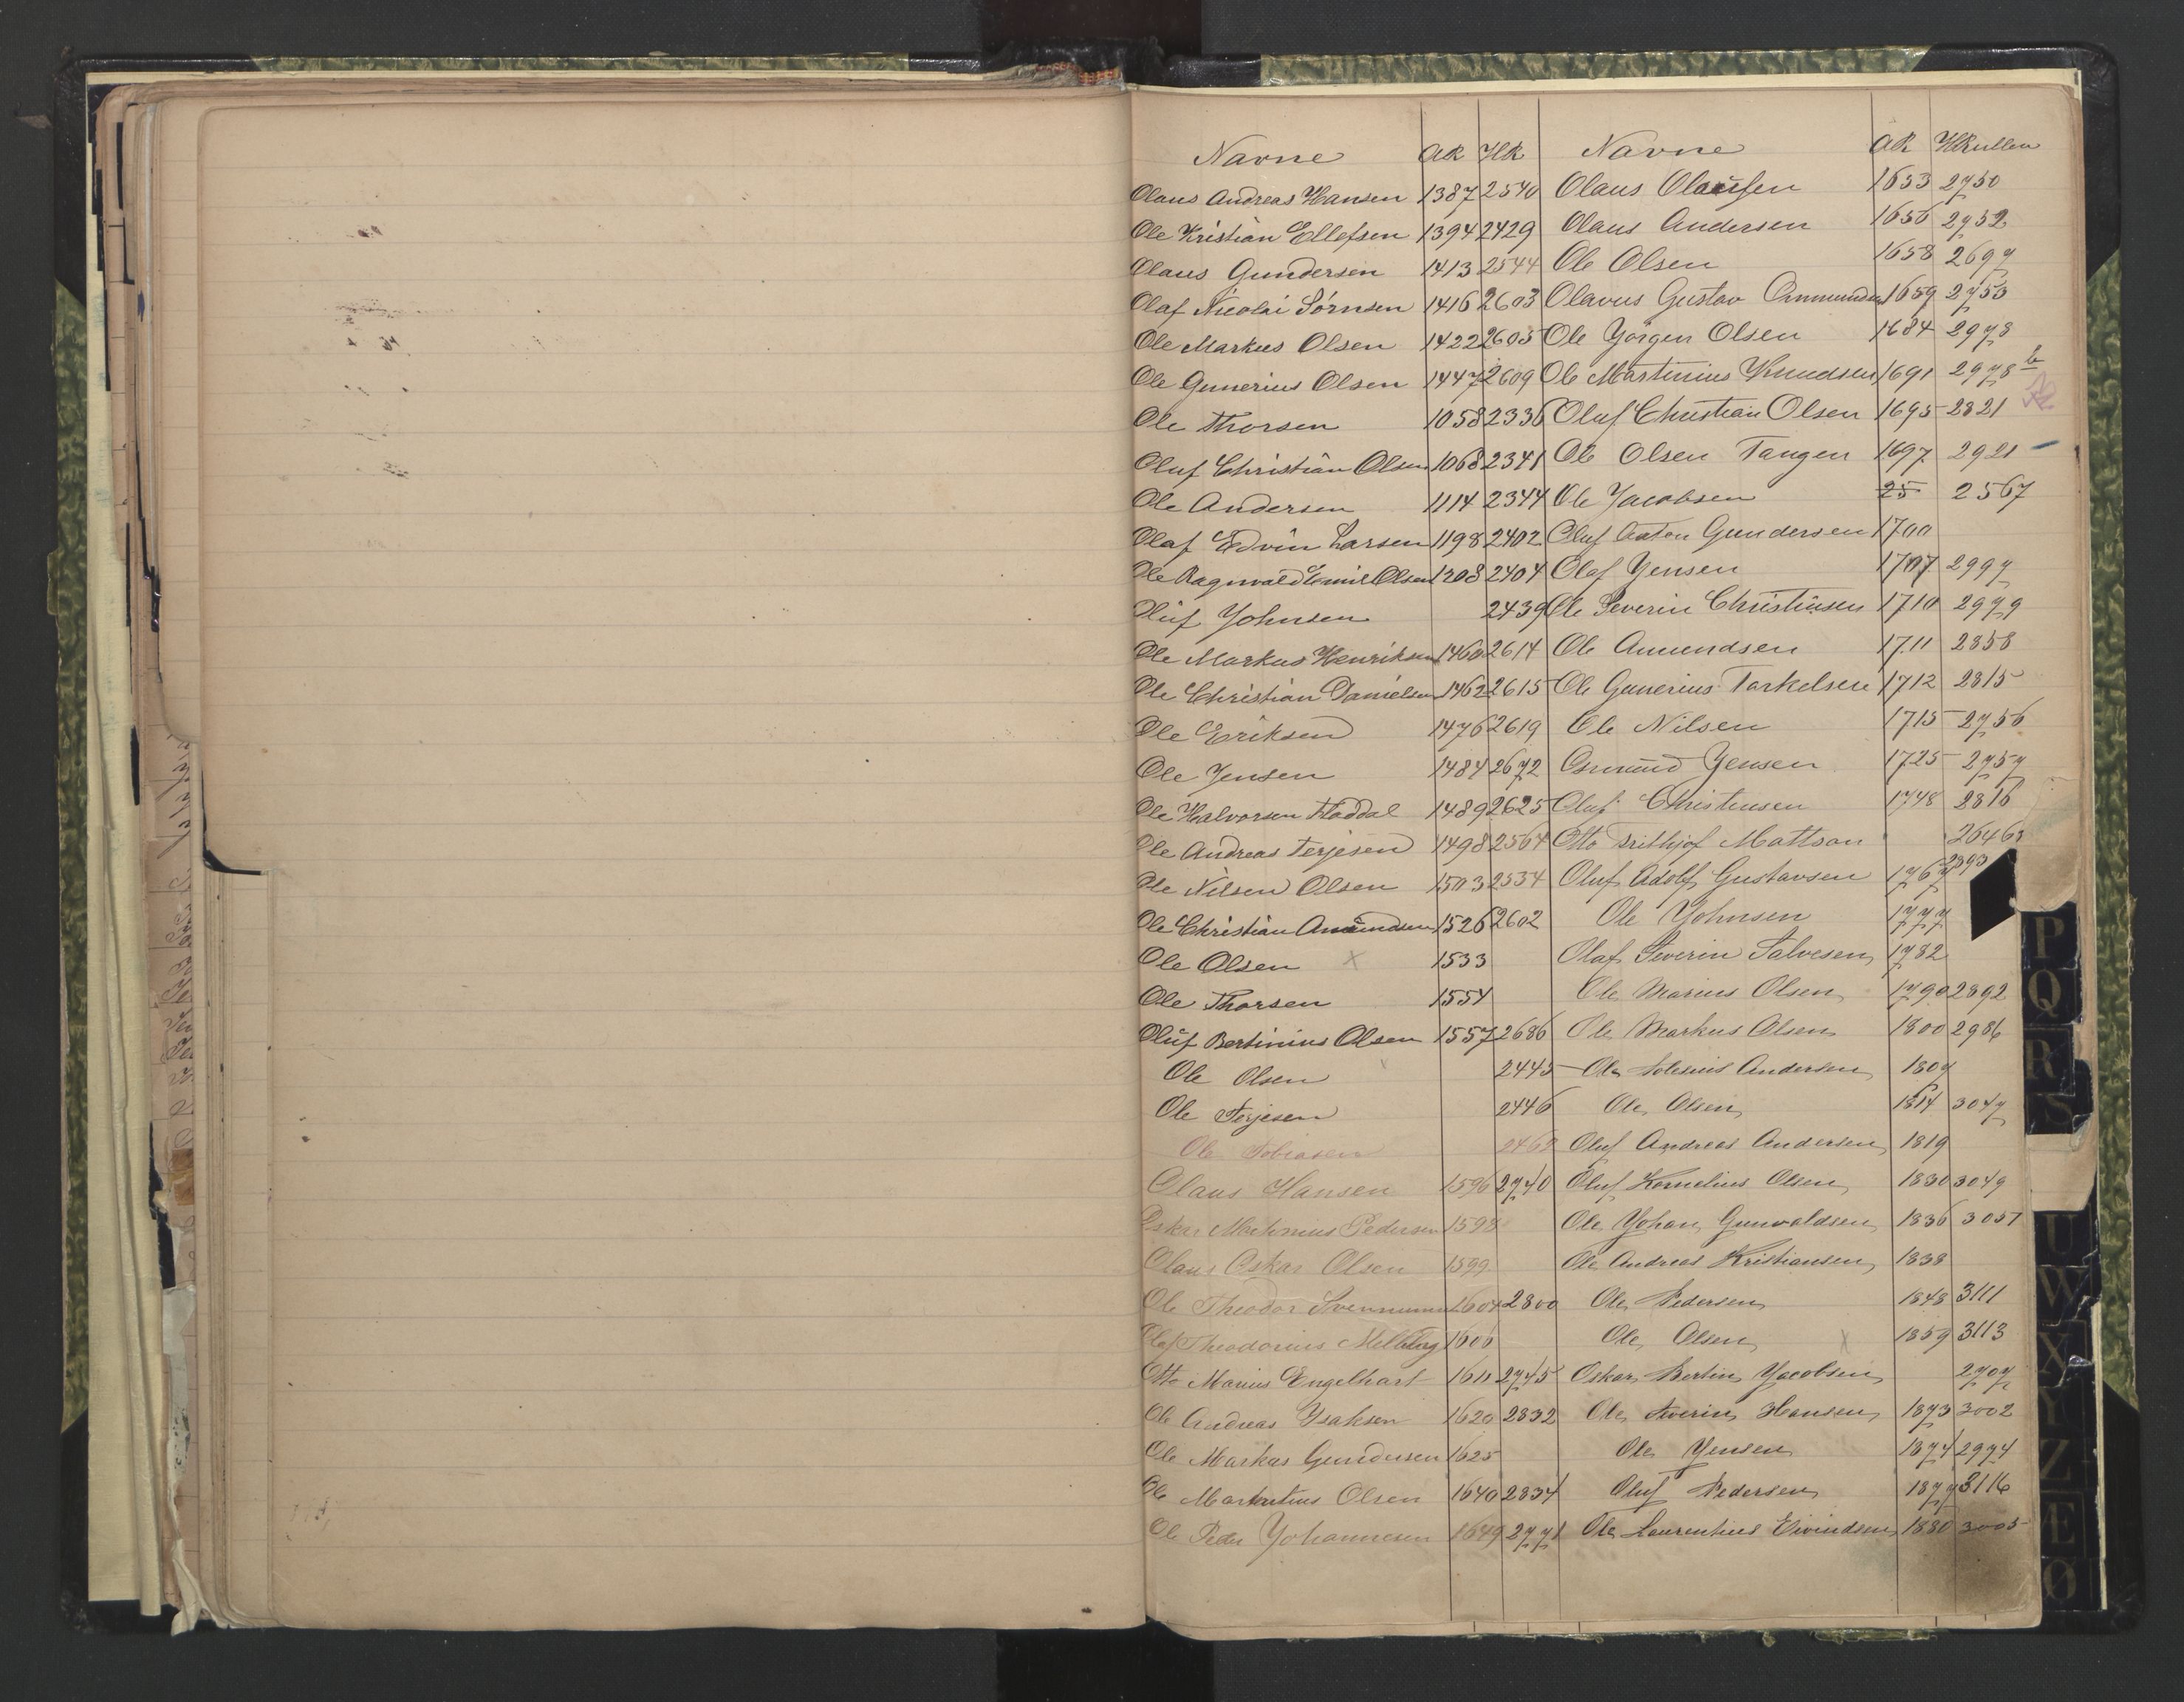 Navne AR HR
Olaus Andreas Hansen 1387 2540
Ole Kristian Ellefsen 1394 2429
Olaus Gundersen 1413 2544
Olaf Nicolai Sørnsen 1416 2603
Ole Markus Olsen 1422 2605
Ole Gunerius Olsen 1447 2609
Ole Thorsen 1058 2336
Oluf Christian Olsen 1068 2341
Ole Andersen 1114 2344
Olaf Edvin Larsen 1198 2402
Ole Ragnvald Emil Olsen 1208 2404
Oluf Johnsen 2439
Ole Markus Henriksen 1460 2614
Ole Christian Danielsen 1462 2615
Ole Eriksen 1476 2619
Ole Jensen 1484 2672
Ole Halvorsen Haddal 1489 2625
Ole Andreas Terjesen 1498 2564
Ole Nilsen Olsen 1503 2534
Ole Christian Amundsen 1526 2602
Ole Olsen x 1533
Ole Thorsen 1554
Oluf Bertinius Olsen 1557 2686
Ole Olsen x 2445
Ole Terjesen 2446
Ole Tobiasen 2462
Olaus Hansen 1596 2740
Oskar Pedersen 1598
Olaus Oskar Olsen 1599
Ole Theodor 1604 2800
Olaf Theodorius 1606
Otto Marius Engelhart 1611 2745
Ole Andreas Isaksen 1620 2832
Ole Markus Gundersen 1625
Ole Olsen 1640 2834
Ole Peder Johannesen 1649 2771
Navne AR HRullen
Olaus Olausen 1653 2750
Olaus Andersen 1656 2752
Ole Olsen 1658 2697
Olavus Gustav 1659 2753
Ole Jörgen Olsen 1684 2978
Ole Martinius Knudsen 1691 2978 b
Oluf Christian Olsen 1695 2821
Ole Olsen Tangen 1697 2921
Ole Jacobsen 25 2567
Oluf Anton Gundersen 1700
Olaf Jensen 1707 2997
Ole Severin Christensen 1710 2979
Ole Amundsen 1711 2858
Ole Gunerius Torkelsen 1712 2815
Ole Nilsen 1715 2756
Osmund Jensen 1725 2757
Oluf Christensen 1748 2816
Otto Frithjof Mattson
Oluf Adolf Gustavsen 1767 2893
Ole Johnsen 1777
Olaf Severin Salvesen 1782
Ole Marius Olsen 1790 2892
Ole Markus Olsen 1800 2986
Ole Andersen 1807
Ole Olsen 1814 3047
Oluf Andreas Andersen 1819
Oluf Kornelius Olsen 1830 3049
Ole Johan Gunvaldsen 1836 3057
Ole Andreas Kristiansen 1838
Ole Pedersen 1848 3111
Ole Olsen x 1859 3113
Oskar Bertin Jacobsen 2707
Ole Severin Hansen 1873 3002
Ole Jensen 1874 2974
Oluf Pedersen 1877 3116
Ole Laurentius Eivindsen 1880 3005
P
Q
R
S
U
W
X
Y
Z
Æ
Ø